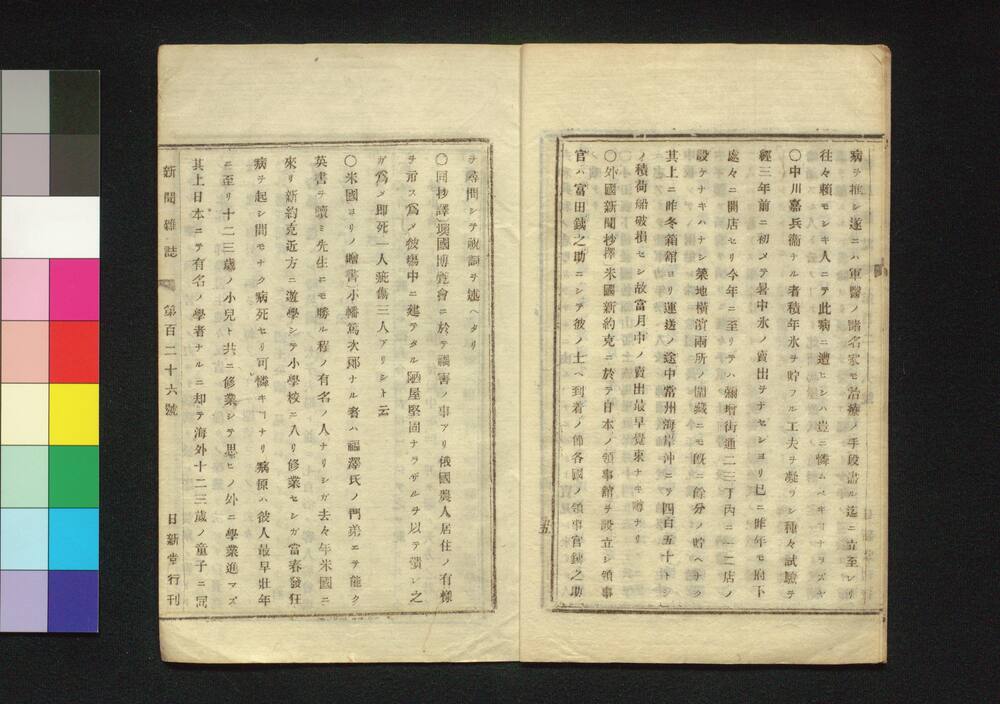 病ヲ推シ遂ニハ軍醫ノ諸名家モ治療ノ手段盡ル迄ニ立至レリ
往々賴モシキ人ニテ此病ニ遭ヒシハ豈ニ憐ムベキヿナラズヤ
〇中川嘉兵衞ナル者積年氷ヲ貯フル工夫ヲ凝ラシ種々試驗ヲ
經三年前ニ初メテ暑中氷ノ賣出ヲナセシヨリ已ニ昨年モ府下
處々ニ開店セリ今年ニ至リテハ彌增街通二三丁内ニ一二店ノ
設テナキハナシ築地橫濱兩所ノ圍藏ニモ既ニ餘分ノ貯ヘナク
其上ニ昨冬箱館ヨリ運送ノ途中常州海岸沖ニテ四百五十トン
ノ積荷船破損セシ故當月中ノ賣出最早覺束ナキ噂ナリ
〇外國新聞抄擇米國新約克ニ於テ日本ノ領事館ヲ設立シ領事
官ハ富田鐵之助ニシテ彼ノ士ヘ到着ノ節各國ノ領事官鐵之助
五
ヲ尋問シテ祝詞ヲ述ヘタリ
〇同抄譯 墺國博覽會ニ於テ禍害ノ事アリ俄國農人居住ノ有樣
ヲ示ス爲メ彼塲中ニ建テタル陋屋堅固ナラザルヲ以テ潰レ之
ガ爲メ即死一人疵傷三人アリシト云
〇米國ヨリノ贈書 小幡篤次郎ナル者ハ福澤氏ノ門弟ニテ能ク
英書ヲ讀ミ先生ニモ勝ル程ノ有名ノ人ナリシガ去々年米國ニ
來リ新約克近方ニ遊學シテ小學校ニ入リ修業セシガ當春發狂
病ヲ起シ間モナク病死セリ可憐キヿナリ病原ハ彼人最早壯年
ニ至リ十二三歲ノ小兒ト共ニ修業シテ思ヒノ外ニ學業進マズ
其上日本ニテ有名ノ學者ナルニ却テ海外十二三歲ノ童子ニ同
新聞雜誌 第百二十六號 日新堂行刊